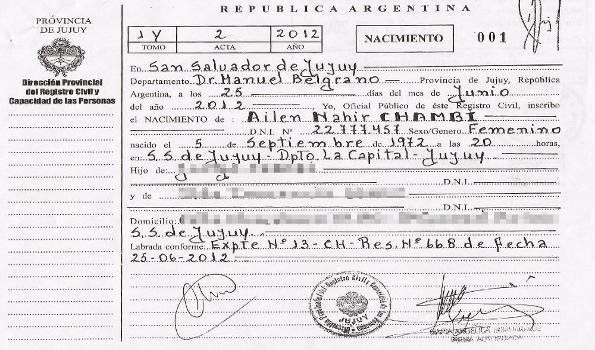 REPUBLICA ARGENTINA
PROVINCIA
DE JUJUY
Dirección Provincial
del Registro Civil y
Capacidad de las Personas
1 Y 2 2012
TOMO ACTA AÑO
NACIMIENTO 001
En San Salvador de Jujuy
Departamento Dr. Manuel Belgrano Provincia de Jujuy, República
Argentina, a los 25 días del mes de Junio
del año 2012 Yo, Oficial Público de éste Registro Civil, inscribe
el NACIMIENTO de: Ailen Nahir CHAMBI
D.N.I. Nº 22.777.457 Sexo/Genero Femenino
nacido el 5 de Septiembre de 1972 a las 20 horas,
en S.S. de Jujuy - Dpto. La Capital - Jujuy
Hijo de:
D.N.I.
y de
D.N.I.
Domicilio:
S.S. de Jujuy
Labrada conforme: Expte Nº 13-CH-Res. Nº 668 de Fecha
25-06-2012